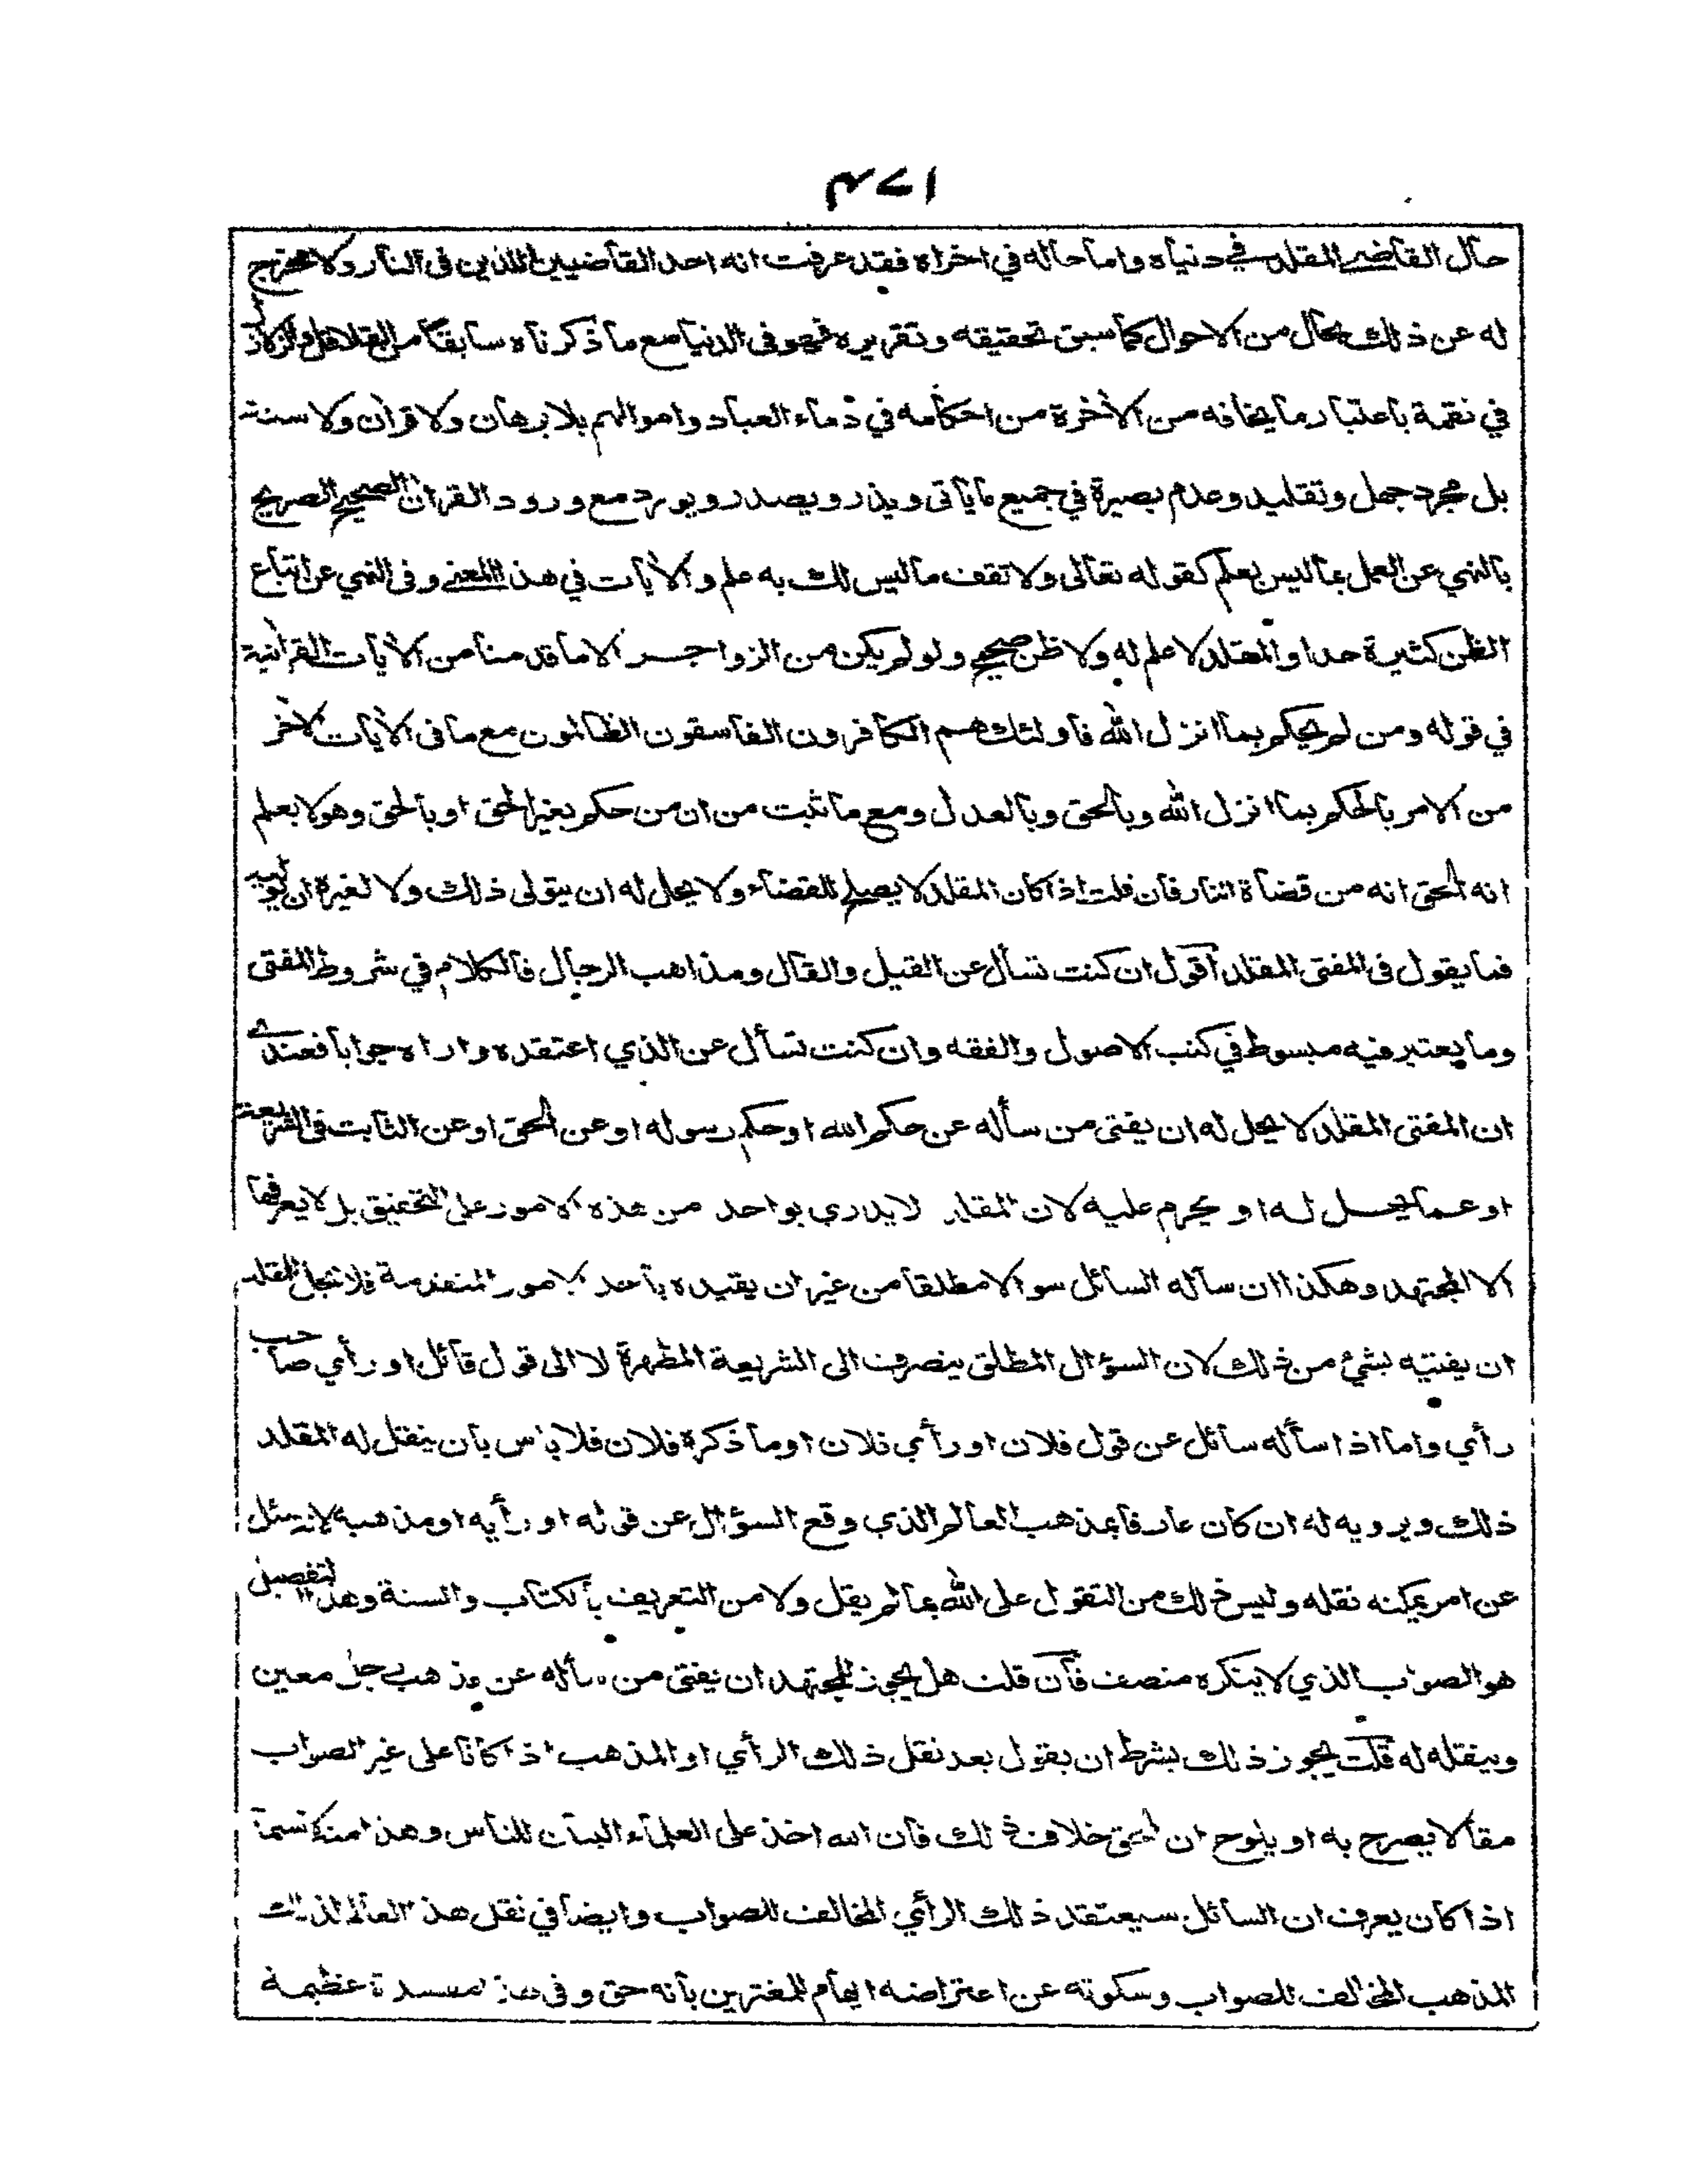 ١٧٤
حال القاضي المقلد في دنياه واما حاله في اخراه فقد عرفت انه احد القاضيين اللذين في النار ولا مخرج
له عن ذلك بحال من الاحوال كما سبق تحقيقه وتقريره فهو في الدنيا مع ما ذكرناه سابقا من
في نقمة باعتبار ما يخافه من الآخرة من احكامه في دماء العباد واموالهم بلا برهان ولا قرآن ولا سنة
بل مجرد جهل وتقليد وعدم بصيرة في جميع ما يأتى ويذر ويصدر ويورد مع ورود القرآن الصحيح الصريح
بالنهي عن العمل بما ليس بعلم كقوله تعالى ولا تقف ما ليس لك به علم والآيات في هذا المعنى وفى النهي عن اتباع
الظن كثيرة جدا والمقلد لا علم له ولا ظن صحيح ولو لم يكن من الزواجر الا ما قدمنا من الآيات القرآنية
في قوله ومن لم يحكم بما انزل الله فاولئك هم الكافرون الفاسقون الظالمون مع ما فى الآيات الاخر
من الامر بالحكم بما انزل الله وبالحق وبالعدل ومع ما ثبت من ان من حكم بغير الحق او بالحق وهو لا يعلم
انه الحق انه من قضاة النار فان قلت اذا كان المقلد لا يصلح للقضاء ولا يحل له ان يتولى ذلك ولا لغيره ان يوليه
فما يقول فى المفتى المقلد اقول ان كنت تسأل عن القيل والقال ومذاهب الرجال فالكلام في شروط المفتى
وما يعتبر فيه مبسوط في كتب الاصول والفقه وان كنت تسأل عن الذي اعتقده واراه جوابا فعندي
ان المفتى المقلد لا يحل له ان يفتى من سأله عن حكم الله او حكم رسوله او عن الحق او عن الثابت فى الشريعة
او عما يحل له او يحرم عليه لان المقلد لا يدري بواحد من هذه الامور على التحقيق بل لا يعرفها
الا المجتهد وهكذا ان سأله السائل سوالا مطلقا من غير ان يقيده باحد الامور المتقدمة فلا يحل للمقلد
ان يفتيه بشئ من ذلك لان السؤال المطلق ينصرف الى الشريعة المطهرة لا الى قول قائل او رأي صاحب
رأي واما اذا سأله سائل عن قول فلان او رأي فلان او ما ذكره فلان فلا باس بان ينقل له المقلد
ذلك ويرويه له ان كان عارفا بمذهب العالم الذي وقع السؤال عن قوله او رأيه او مذهبه لانه سئل
عن امر يمكنه نقله وليس ذلك من التقول على الله بما لم يقل ولا من التعريف بالكتاب والسنة وهذا التفصيل
هو الصواب الذي لا ينكره منصف فان قلت هل يجوز للمجتهد ان يفتى من سأله عن مذهب رجل معين
وينقله له قلت يجوز ذلك بشرط ان يقول بعد نقل ذلك الرأي او المذهب اذا كانا على غير الصواب
مقالا يصرح به او يلوح ان الحق خلاف ذلك فان الله اخذ على العلماء البيان للناس وهذا منه لا سيما
اذا كان يعرف ان السائل سيعتقد ذلك الرأي المخالف للصواب وايضا في نقل هذا العالم لذلك
المذهب المخالف للصواب وسكوته عن اعتراضه ايهام للمغترين بانه حق وفى هذا مفسدة عظيمة